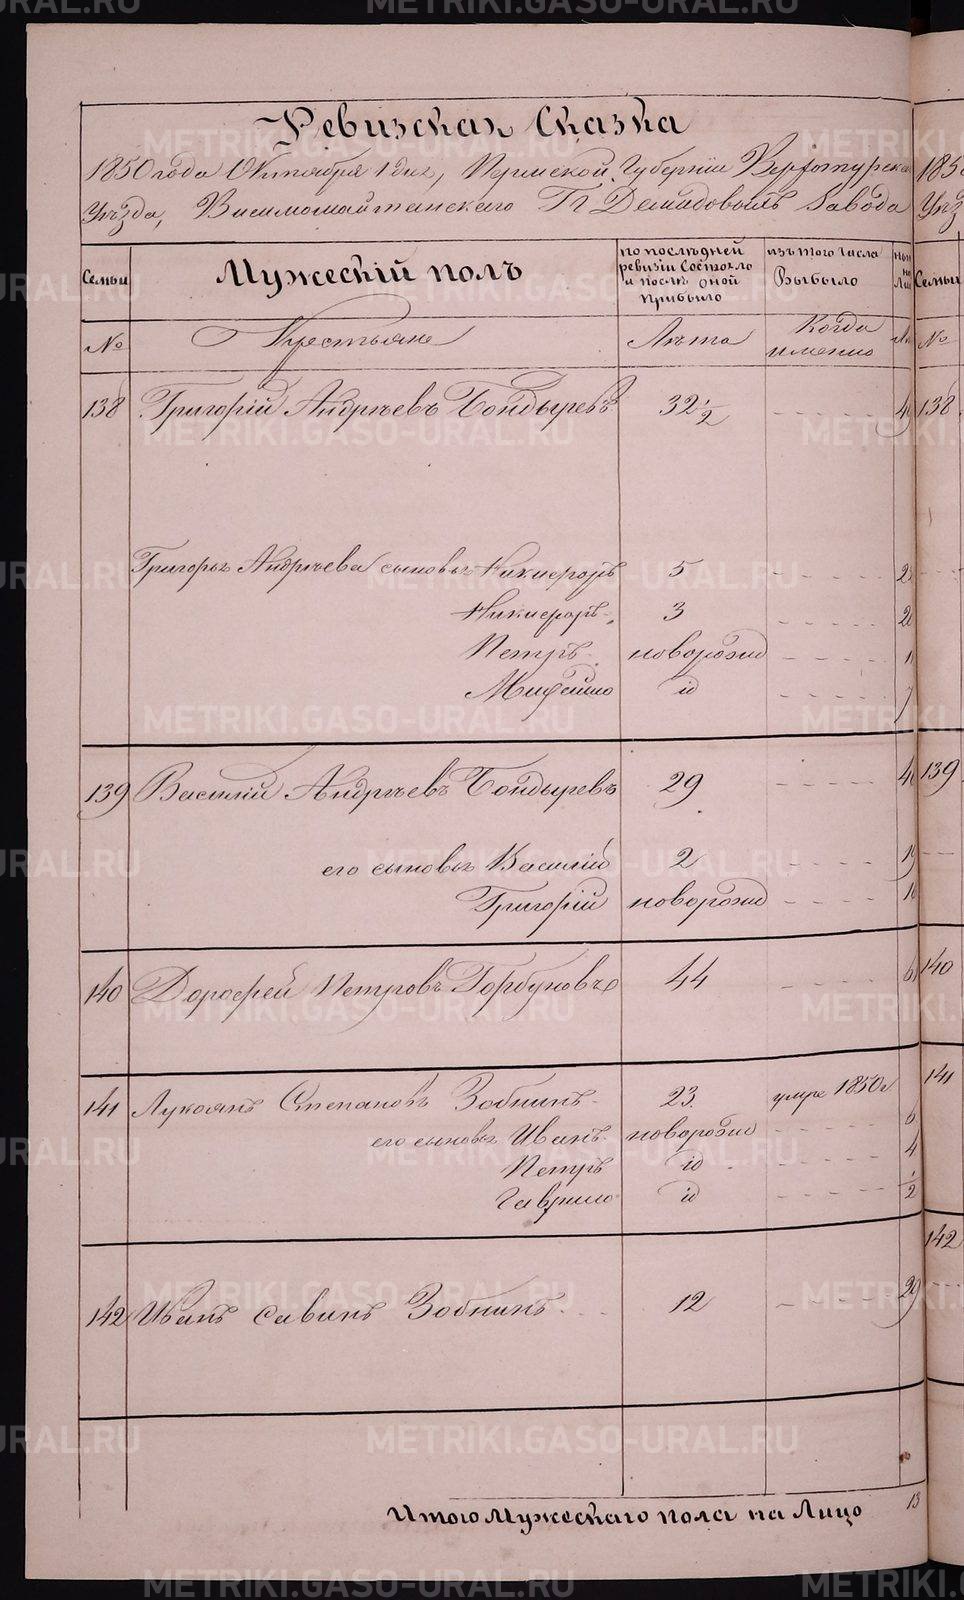 Ревизская Сказка
1850 года Октября 1 дня, Пермской Губернiи Верхотурска
Уѣзда, Висимошайтанскаго Гг Демидовыхъ Завода
Семьи
Мужескiй полъ
по послѣдней ревизiи Состояло и послѣ оной прибыло
изъ того числа Выбыло
№
Крестьяне
Лѣта
Когда именно
138 Григорiй Андрѣевъ Бондыревъ 32 1/2 - - - - - 4
Григорья Андрѣева сыновья Никифоръ 5 - - - - - 2
Никифоръ 3 - - - - - 20
Петръ новорожд - - - - - 1
Мифодiю id - - - - - 7
139 Василiй Андрѣевъ Бондыревъ 29 - - - - - 4
его сыновья Василiй 2 - - - - - 19
Григорiй новорожд - - - - - 16
140 Дорофей Петровъ Горбуновъ 44 - - - - - 6
141 Лукоянъ Степановъ Зобнинъ 23 умре 1850 г
его сыновья Иванъ новорожд - - - - - 6
Петръ id - - - - - 4
Гаврило id - - - - - 1/2
142 Иванъ Савинъ Зобнинъ 12 - - - - - 29
Итого Мужескаго пола на Лицо 13
185
Уѣз
Семьи
№
138
139
140
141
142
METRIKI.GASO-URAL.RU